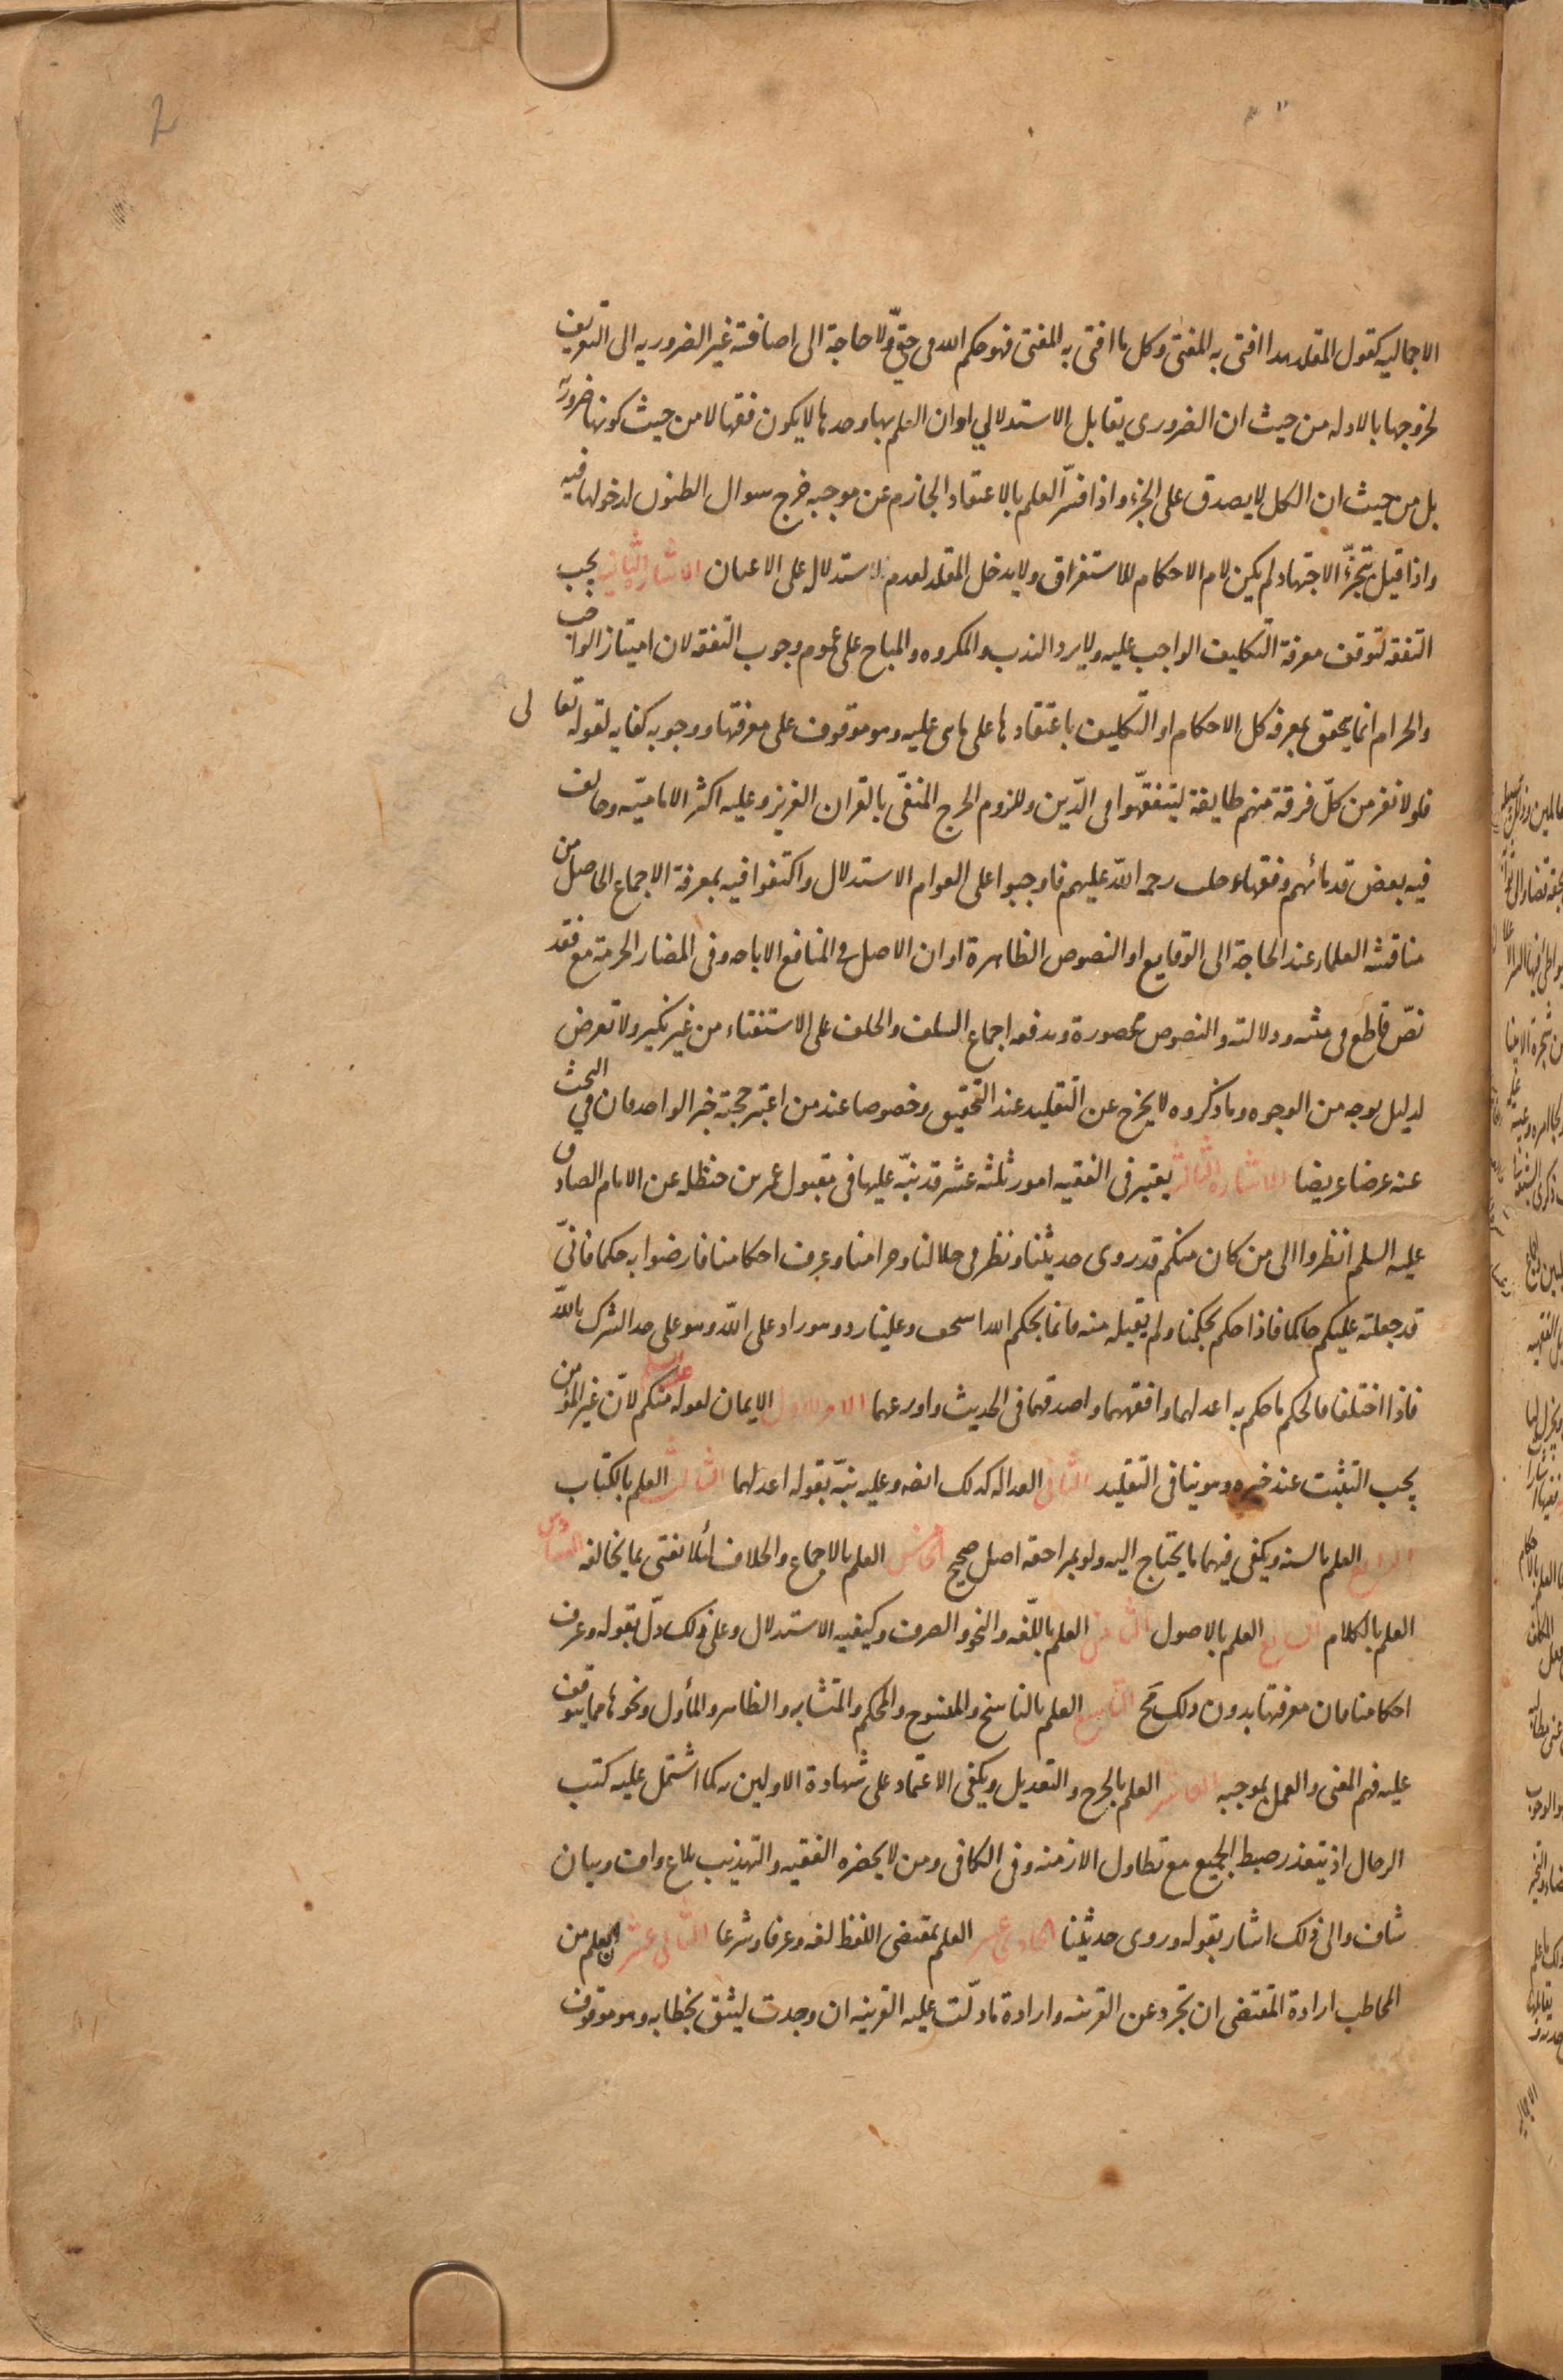 2
الاجماليه كقول المقلد هذا افتى به المفتى وكل ما افتى به المفتى فهو حكم الله فى حقى ولا حاجة الى اضافة غير الضروريه الى التعريف
لخروجها بالادله من حيث ان الضرورى يقابل الاستدلالي او ان العلم بها وحدها لا يكون فقها لا من حيث كونها ضرورية
بل من حيث ان الكل لا يصدق على الجزء واذا فسّر العلم بالاعتقاد الجازم عن موجبه خرج سوال الظنون لدخولها فيه
واذا قيل بتجزّى الاجتهاد لم يكن لام الاحكام للاستغراق ولا يدخل المقلد لعدم الاستدلال على الاعيان الاشارة الثانيه يجب
التفقه لتوقف معرفة التكليف الواجب عليه ولا يرد الندب والمكروه والمباح على عموم وجوب التفقه لان امتياز الواجب
والحرام انما يتحقق بمعرفة كل الاحكام او التكليف باعتقادها على ما هى عليه وهو موقوف على معرفتها ووجوبه كفايه لقوله تعالى
فلولا نفر من كلّ فرقة منهم طايفة ليتفقّهوا فى الدّين وللزوم الحرج المنفىّ بالقران العزيز وعليه اكثر الاماميّه وخالف
فيه بعض قدمائهم وفقهاء حلب رحمة اللّه عليهم فاوجبوا على العوام الاستدلال واكتفوا فيه بمعرفة الاجماع الحاصل من
مناقشة العلماء عند الحاجة الى الوقايع او النصوص الظاهرة او ان الاصل فى المنافع الاباحه وفى المضار الحرمة مع فقد
نصّ قاطع فى متنه ودلالته والنصوص محصورة ويدفعه اجماع السلف والخلف على الاستفتاء من غير نكير ولا تعرض
لدليل بوجه من الوجوه وما ذكروه لا يخرج عن التقليد عند التحقيق وخصوصا عند من اعتبر حجية خبر الواحد فان في البحث
عنه عرضا عريضا الاشارة الثالثه يعتبر فى الفقيه امور ثلثه عشر قد نبّه عليها فى مقبول عمر بن حنظله عن الامام الصادق
عليه السلم انظروا الى من كان منكم قد روى حديثنا ونظر فى حلالنا وحرامنا وعرف احكامنا فارضوا به حكما فانّى
قد جعلته عليكم حاكما فاذا حكم بحكمنا ولم يقبله منه فانما بحكم الله استخف وعلينا رد وهو راد على اللّه وهو على حد الشرك باللّه
فاذا اختلفا فالحكم ما حكم به اعدلهما وافقههما واصدقهما فى الحديث واورعهما الامر الاول الايمان لقوله عليه السلم منكم لانّ غير المؤمن
يجب التثبت عند خبره وهو ينافى التقليد الثانى العداله كذلك ايضه وعليه نبّه بقوله اعدلهما الثالث العلم بالكتاب
الرابع العلم بالسنه ويكفى فيهما ما يحتاج اليه ولو بمراجعة اصل صحيح الخامس العلم بالاجماع والخلاف لئلا يفتى بما يخالفه السادس
العلم بالكلام السابع العلم بالاصول الثامن العلم باللّغه والنحو والصرف وكيفيه الاستدلال وعلى ذلك دلّ بقوله وعرف
احكامنا فان معرفتها بدون ذلك مح التاسع العلم بالناسخ والمنسوخ والمحكم والمتشابه والظاهر والمأول ونحوها مما يتوقف
عليه فهم المعنى والعمل بموجبه العاشر العلم بالجرح والتعديل ويكفى الاعتماد على شهادة الاولين به كما اشتمل عليه كتب
الرجال اذ يتعذر ضبط الجميع مع تطاول الازمنه وفى الكافى ومن لا يحضره الفقيه والتهذيب بلاغ واف وبيان
شاف والى ذلك اشار بقوله وروى حديثنا الحادى عشر العلم بمقتضى اللفظ لغه وعرفا وشرعا الثانى عشر ان يعلم من
المخاطب ارادة المقتضى ان تجرد عن القرينه وارادة ما دلّت عليه القرينه ان وجدت ليثق بخطابه وهو موقوف